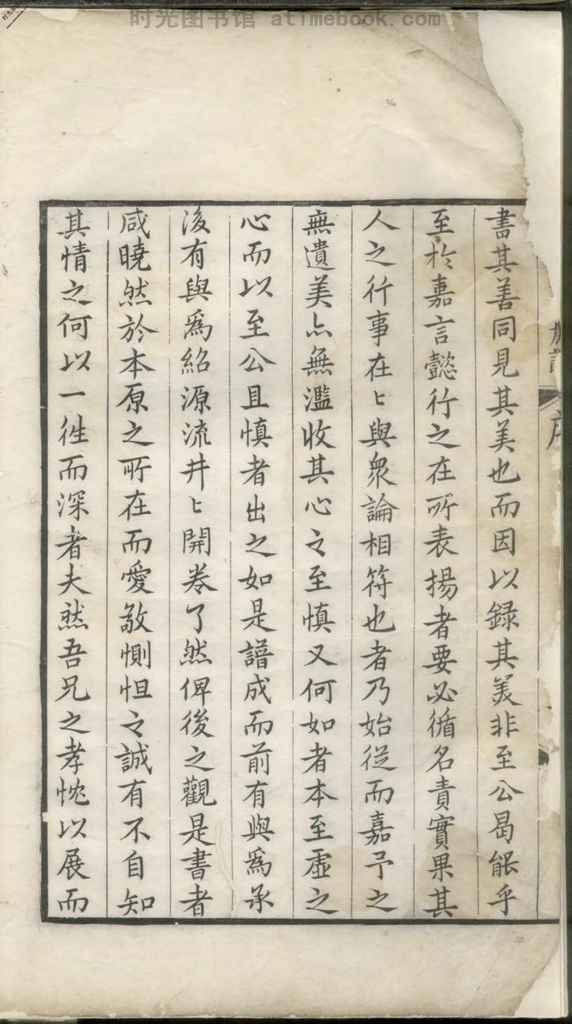 时光图书馆 atimebook.com
書其善同見其美也而因以録其美非至公曷能乎
至於嘉言懿行之在所表揚者要必循名責實果其
人之行事在〻與衆論相符也者乃始従而嘉予之
無遺美亦無濫收其心之至慎又何如者本至虛之
心而以至公且慎者出之如是譜成而前有與爲承
後有與爲紹源流井〻開卷了然俾後之觀是書者
咸曉然於本原之所在而愛敬惻怛之誠有不自知
其情之何以一徃而深者夫然吾兄之孝忱以展而